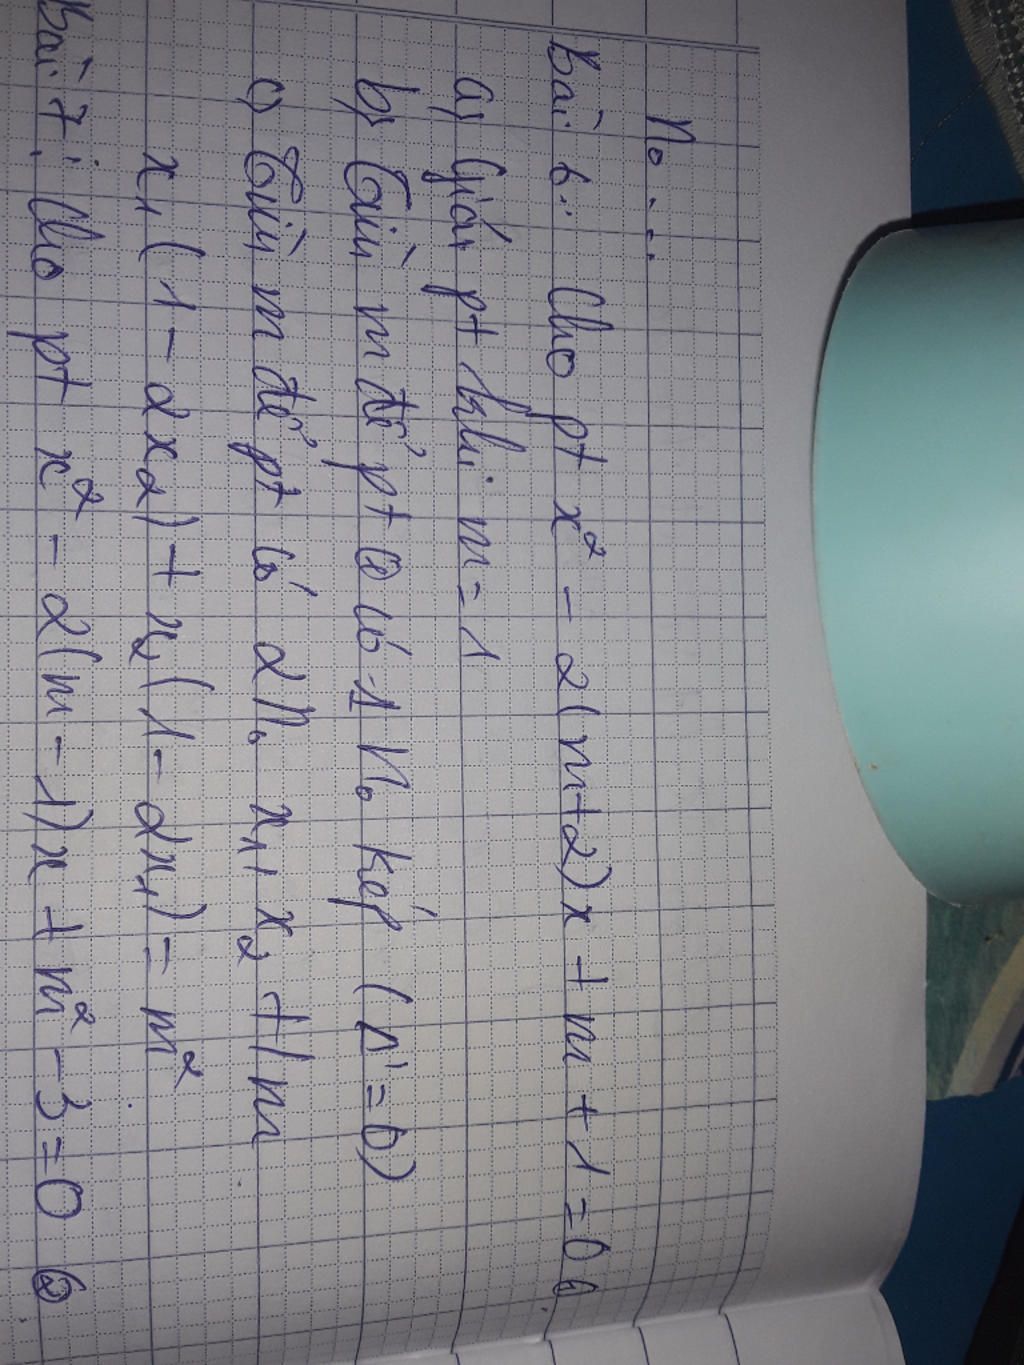 No...
Bài 6: Cho pt x² - 2(m+2)x + m + 1 = 0
a, Giải pt khi m = 1
b, Tìm m để pt có 1 No kép (Δ' = 0)
c, Tìm m để pt có 2 No x₁, x₂ t/m
x₁(1 - 2x₂) + x₂(1 - 2x₁) = m²
Bài 7: Cho pt x² - 2(m - 1)x + m² - 3 = 0